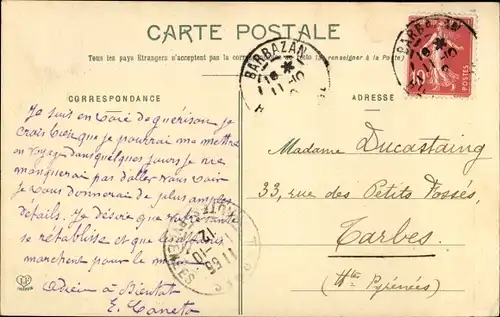 CARTE POSTALE
Tous les pays Etrangers n'acceptent pas la correspondance au recto (Se renseigner à la Poste)
BARBAZAN
BARBAZAN
10
CORRESPONDANCE
ADRESSE
Je suis en voie de guérison je
crois bien que je pourrai me mettre
en voyage dans quelques jours je ne
manquerai pas d'aller vous voir
je vous donnerai de plus amples
détails. Je désire que votre santé
se rétablisse et que les affaires
marchent pour le mieux.
Adieu à Bientôt
E. Caneto
Madame Ducastaing
33, rue des Petits Fossés,
Tarbes.
(Htes Pyrénées)
TARBES
HTES PYRENEES
11 35
12-10